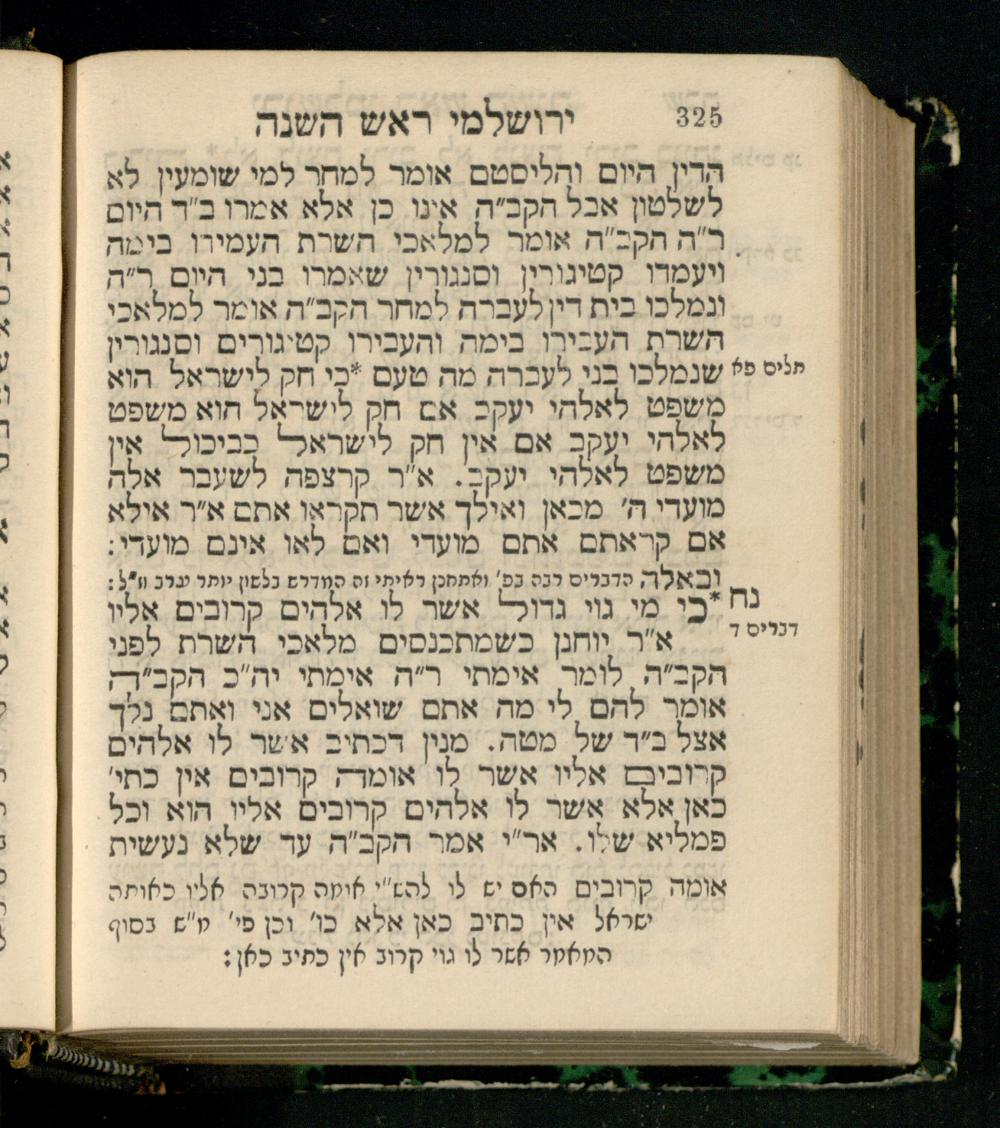 325 ירושלמי ראש השנה
הדין היום והליסטם אומר למחר למי שומעין לא
לשלטון אבל הקב״ה אינו כן אלא אמרו ב״ד היום
ר״ה הקב״ה אומר למלאכי השרת העמירו בימה
ויעמדו קטיגורין וסנגורין שאמרו בני היום ר״ה
ונמלכו בית דין לעברה למחר הקב״ה אומר למלאכי
השרת העבירו בימה והעבירו קטיגורים וסנגורין
שנמלכו בני לעברה מה טעם *כי חק לישראל הוא
תלים פא
משפט לאלהי יעקב אם חק לישראל הוא משפט
לאלהי יעקב אם אין חק לישראל כביכול אין
משפט לאלהי יעקב. א״ר קרצפה לשעבר אלה
מועדי ה׳ מכאן ואילך אשר תקראו אתם א״ר אילא
אם קראתם אתם מועדי ואם לאו אינם מועדי:
ובאלה הדברים רבה בפ׳ ואתחנן ראיתי זה המדרש בלשון יותר ערב וז״ל:
נח
*כי מי גוי גדול אשר לו אלהים קרובים אליו
דברים ד
א״ר יוחנן כשמתכנסים מלאכי השרת לפני
הקב״ה לומר אימתי ר״ה אימתי יה״כ הקב״ה
אומר להם לי מה אתם שואלים אני ואתם נלך
אצל ב״ד של מטה. מנין דכתיב אשר לו אלהים
קרובים אליו אשר לו אומה קרובים אין כתי׳
כאן אלא אשר לו אלהים קרובים אליו הוא וכל
פמליא שלו. אר״י אמר הקב״ה עד שלא נעשית
אומה קרובים האם יש לו להש״י אומה קרובה אליו כאותה
ישראל אין כתיב כאן אלא כו׳ וכן פי׳ מ״ש בסוף
המאמר אשר לו גוי קרוב אין כתיב כאן: